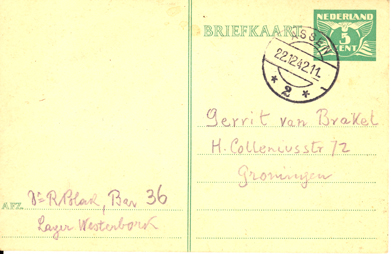 BRIEFKAART
NEDERLAND
5
CENT
ASSEN
22.12.42.11
* 2 *
Gerrit van Brakel
H. Colleniusstr 72
Groningen
AFZ.
R Polak, Bar 36
Lager Westerbork